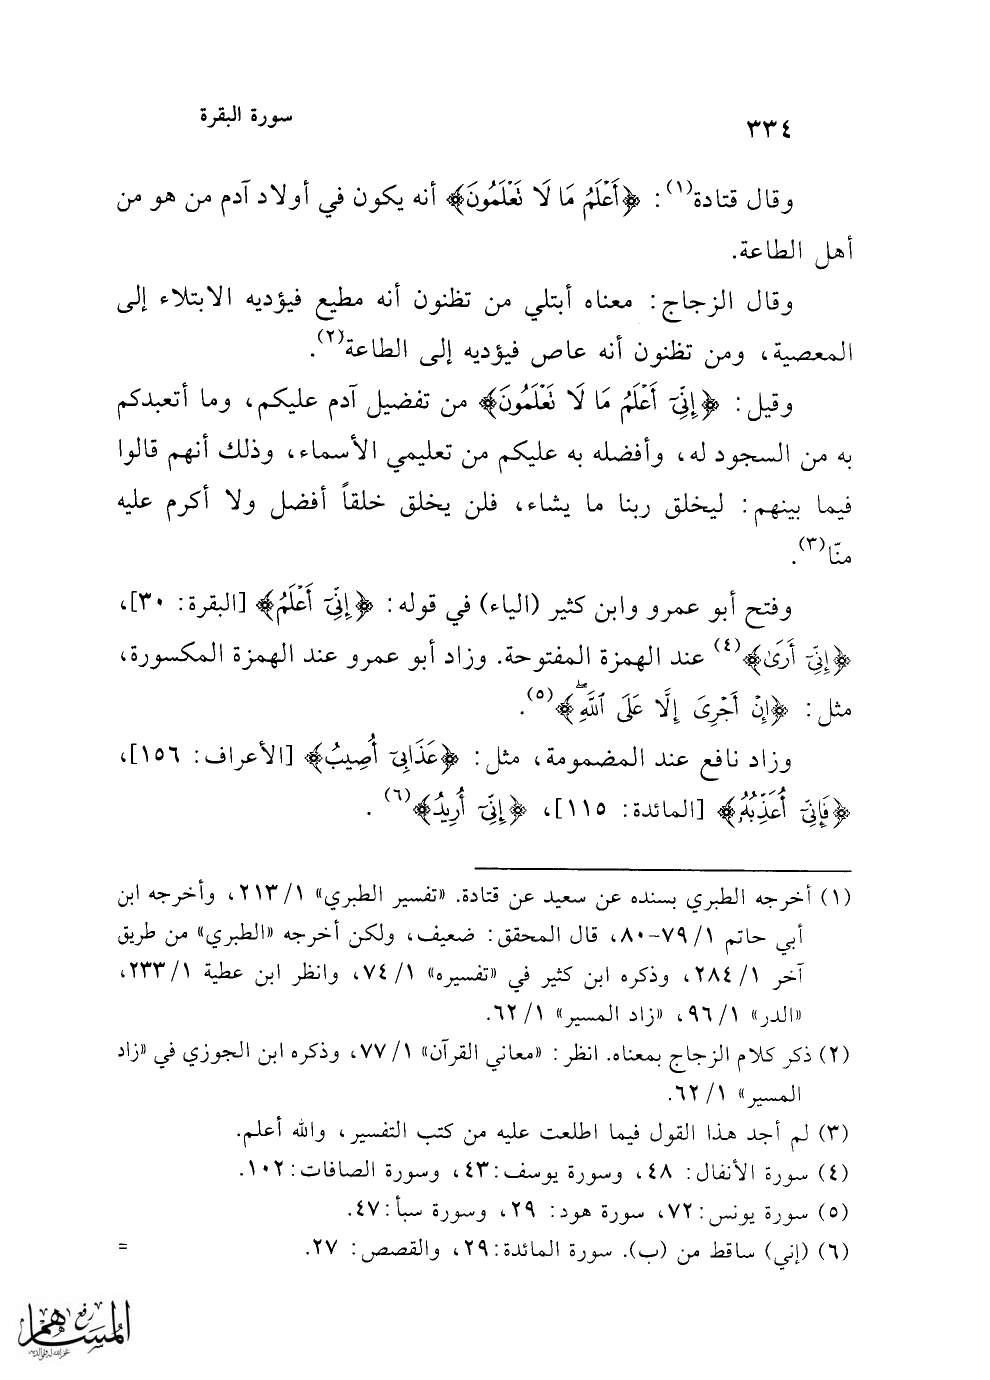 ٣٣٤
سورة البقرة
وقال قتادة(١): ﴿أَعْلَمُ مَا لَا تَعْلَمُونَ﴾ أنه يكون في أولاد آدم من هو من
أهل الطاعة.
وقال الزجاج: معناه أبتلي من تظنون أنه مطيع فيؤديه الابتلاء إلى
المعصية، ومن تظنون أنه عاص فيؤديه إلى الطاعة(٢).
وقيل: ﴿إِنِّي أَعْلَمُ مَا لَا تَعْلَمُونَ﴾ من تفضيل آدم عليكم، وما أتعبدكم
به من السجود له، وأفضله به عليكم من تعليمي الأسماء، وذلك أنهم قالوا
فيما بينهم: ليخلق ربنا ما يشاء، فلن يخلق خلقاً أفضل ولا أكرم عليه
منّا(٣).
وفتح أبو عمرو وابن كثير (الياء) في قوله: ﴿إِنِّيَ أَعْلَمُ﴾ [البقرة: ٣٠]،
﴿إِنِّيَ أَرَى﴾(٤) عند الهمزة المفتوحة. وزاد أبو عمرو عند الهمزة المكسورة،
مثل: ﴿إِنْ أَجْرِيَ إِلَّا عَلَى اللَّهِۖ﴾(٥).
وزاد نافع عند المضمومة، مثل: ﴿عَذَابِيَ أُصِيبُ﴾ [الأعراف: ١٥٦]،
﴿فَإِنِّيَ أُعَذِّبُهُ﴾ [المائدة: ١١٥]، ﴿إِنِّيَ أُرِيدُ﴾(٦).
(١) أخرجه الطبري بسنده عن سعيد عن قتادة. «تفسير الطبري» ١/ ٢١٣، وأخرجه ابن
أبي حاتم ١/ ٧٩-٨٠، قال المحقق: ضعيف، ولكن أخرجه «الطبري» من طريق
آخر ١/ ٢٨٤، وذكره ابن كثير في «تفسيره» ١/ ٧٤، وانظر ابن عطية ١/ ٢٣٣،
«الدر» ١/ ٩٦، «زاد المسير» ١/ ٦٢.
(٢) ذكر كلام الزجاج بمعناه. انظر: «معاني القرآن» ١/ ٧٧، وذكره ابن الجوزي في «زاد
المسير» ١/ ٦٢.
(٣) لم أجد هذا القول فيما اطلعت عليه من كتب التفسير، والله أعلم.
(٤) سورة الأنفال: ٤٨، وسورة يوسف: ٤٣، وسورة الصافات: ١٠٢.
(٥) سورة يونس: ٧٢، سورة هود: ٢٩، وسورة سبأ: ٤٧.
(٦) (إني) ساقط من (ب). سورة المائدة: ٢٩، والقصص: ٢٧. =
رفع
المساهم